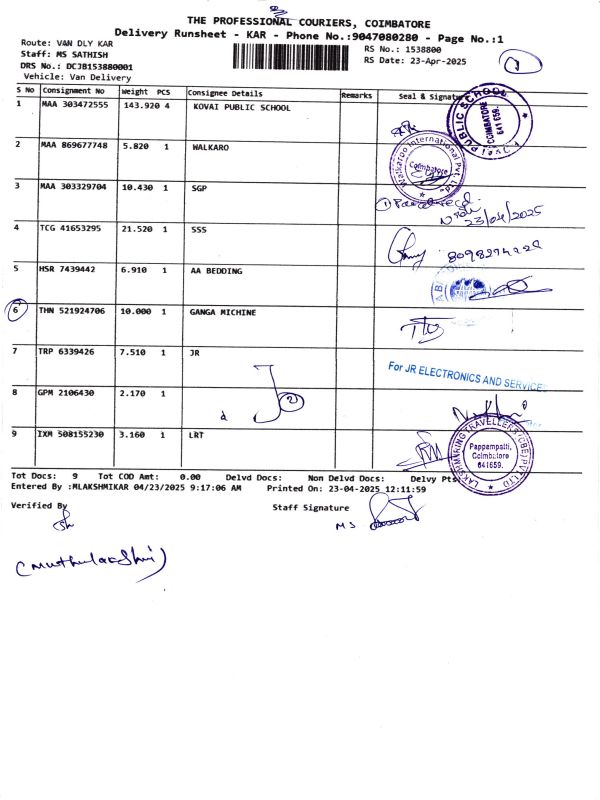 THE PROFESSIONAL COURIERS, COIMBATORE
Delivery Runsheet - KAR - Phone No.:9047080280 - Page No.:1
Route: VAN DLY KAR
RS No.: 1538800
Staff: MS SATHISH
RS Date: 23-Apr-2025
DRS No.: DCJB153880001
Vehicle: Van Delivery
1
S No Consignment No Weight PCS Consignee Details Remarks Seal & Signature
1 MAA 303472555 143.920 4 KOVAI PUBLIC SCHOOL
PUBLIC SCHOOL
COIMBATORE
641 659.
2 MAA 869677748 5.820 1 WALKARO
Walkaroo International Pvt. Ltd.
Coimbatore
3 MAA 303329704 10.430 1 SGP
23/04/2025
4 TCG 41653295 21.520 1 SSS
5 HSR 7439442 6.910 1 AA BEDDING
6 THN 521924706 10.000 1 GANGA MICHINE
7 TRP 6339426 7.510 1 JR
For JR ELECTRONICS AND SERVICES
8 GPM 2106430 2.170 1
2
9 IXM 508155230 3.160 1 LRT
LAKSHMIKING TRAVELLERS (CBE) PVT LTD
Pappampatti,
Coimbatore
641659.
Tot Docs: 9 Tot COD Amt: 0.00 Delvd Docs: Non Delvd Docs: Delvy Pts:
Entered By :MLAKSHMIKAR 04/23/2025 9:17:06 AM Printed On: 23-04-2025 12:11:59
Verified By
Staff Signature
MS
(Muthulakshmi)